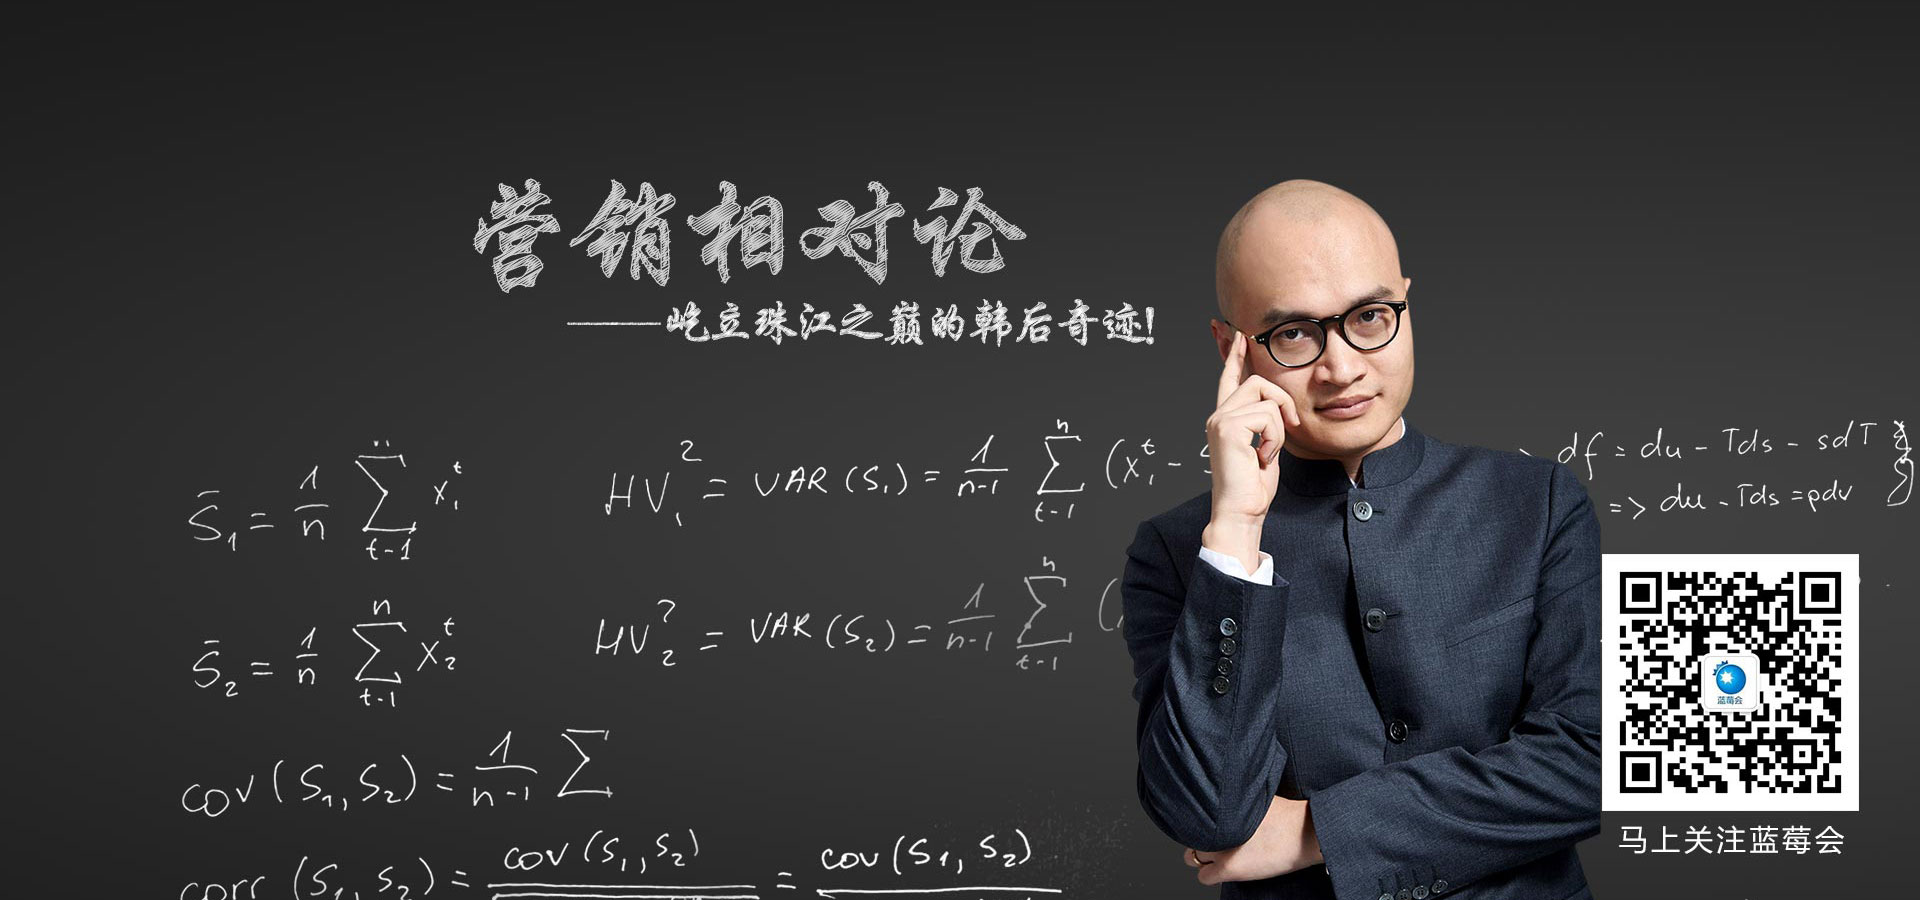 营销相对论
——屹立珠江之巅的韩后奇迹!
S̄₁ = 1/n ∑ t-1 x₁ᵗ
HV₁² = VAR (S₁) = 1/n-1 ∑ⁿ t-1 (x₁ᵗ - S
df = du - Tds - sdT
=> du - Tds = pdv
S̄₂ = 1/n ∑ⁿ t-1 x₂ᵗ
HV₂? = VAR (S₂) = 1/n-1 ∑ⁿ t-1 (
cov (S₁, S₂) = 1/n-1 ∑
corr (S₁, S₂) = cov (S₁, S₂) = cov (S₁, S₂)
蓝莓会
马上关注蓝莓会